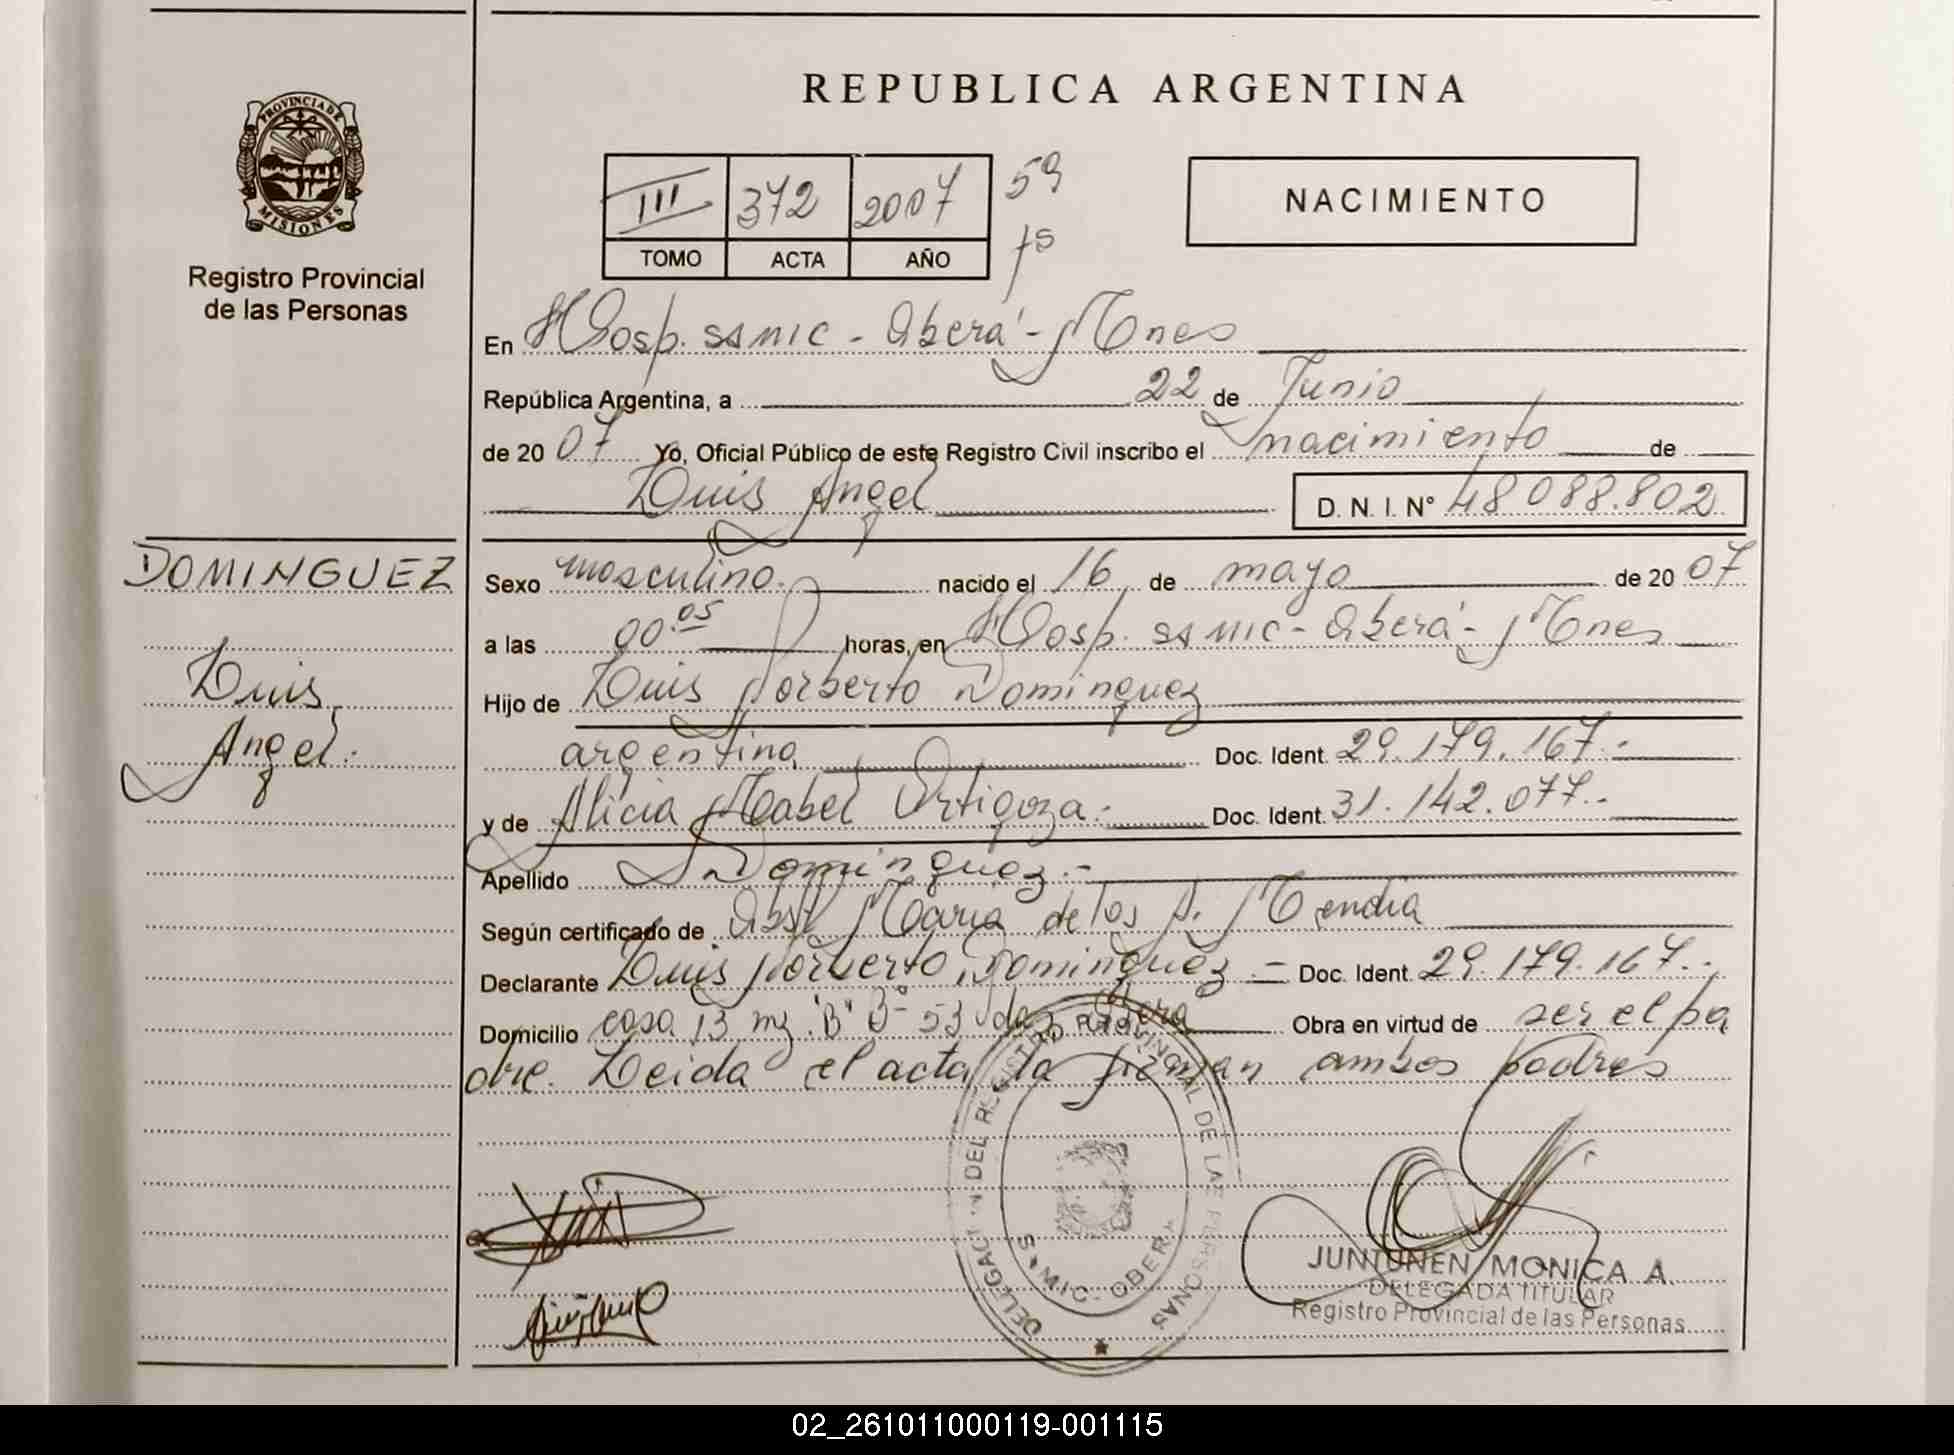 REPUBLICA ARGENTINA
PROVINCIA DE
MISIONES
Registro Provincial
de las Personas
III 372 2007 59
TOMO ACTA AÑO fs
NACIMIENTO
En Hosp. SSMIC - Oberá - Mnes
República Argentina, a 22 de Junio
de 2007 Yo, Oficial Público de este Registro Civil inscribo el nacimiento de
Luis Angel D. N. I. N° 48088.802
DOMINGUEZ
Luis
Angel.
Sexo masculino. nacido el 16 de mayo de 2007
a las 00.05 horas, en Hosp. SSMIC - Oberá - Mnes
Hijo de Luis Norberto Dominguez
argentina Doc. Ident. 29.179.167.-
y de Alicia Mabel Ortigoza.- Doc. Ident. 31.142.077.-
Apellido Dominguez.-
Según certificado de Obst. Maria de los A. Mendia
Declarante Luis Norberto Dominguez.- Doc. Ident. 29.179.167.-
Domicilio casa 13 mz "B" B° 53 Oberá Obra en virtud de ser el pa
dre. Leida el acta la firman ambos padres
DELEGACION DEL REGISTRO PROVINCIAL DE LAS PERSONAS
SSMIC - OBERA
JUNTUNEN MONICA A.
DELEGADA TITULAR
Registro Provincial de las Personas
02_261011000119-001115